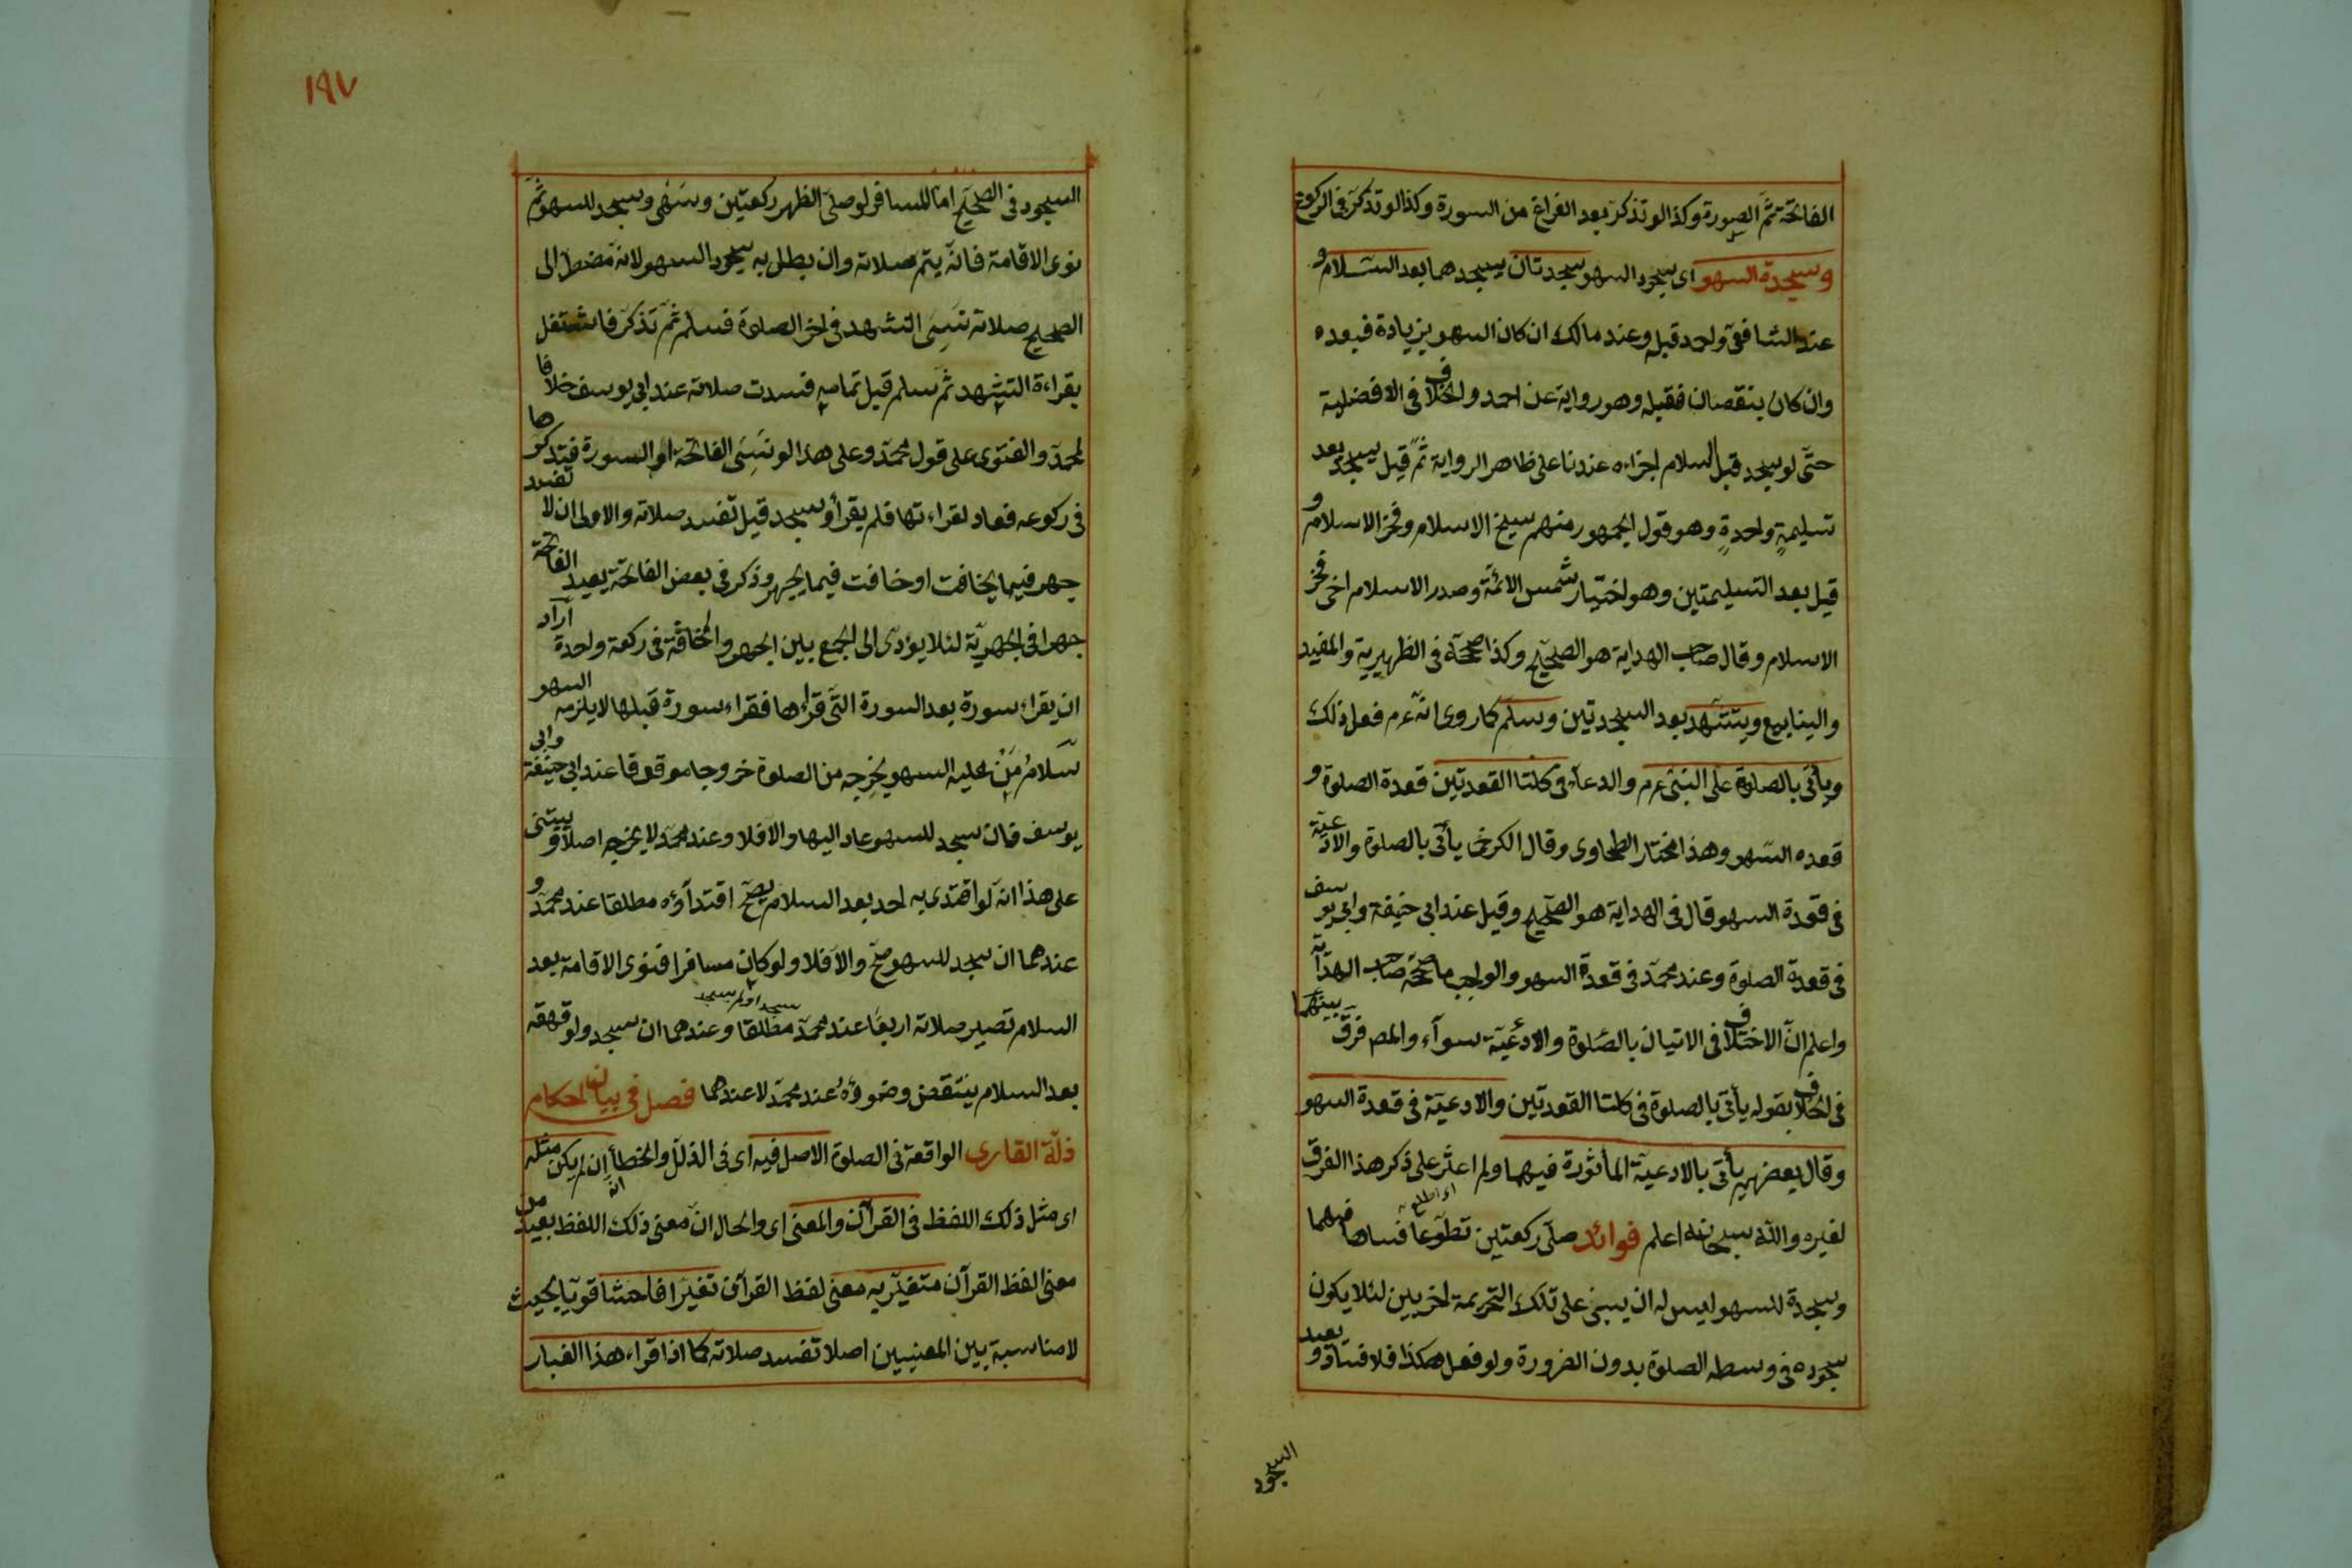 الفاتحة ثمّ السورة وكذا لو تذكر بعد الفراغ من السورة وكذا لو تذكر فى الركوع
وسجدة السهو اى سجود السهو سجدتان يسجدهما بعد السّلام و
عند الشافعى واحمد قبله وعند مالك ان كان السهو بزيادة فبعده
وان كان بنقصان فقبله وهو رواية عن احمد والخلاف فى الافضلية
حتّى لو سجد قبل السلام اجزاءه عندنا على ظاهر الرواية ثمّ قيل يسجد بعد
تسليمةٍ واحدةٍ وهو قول الجمهور منهم شيخ الاسلام وفخر الاسلام و
قيل بعد التسليمتين وهو اختيار شمس الائمّة وصدر الاسلام اخى فخر
الاسلام وقال صاحب الهداية هو الصحيح وكذا صححّه فى الظهيرية والمفيد
والينابيع ويتشّهد بعد السجدتين وسلّم كما روى انّه عم فعل ذلك
ويأتى بالصلوة على النبىّ عم والدعاء فى كلتا القعدتين قعدة الصلوة و
قعده السّهو وهذا مختار الطحاوى وقال الكرخى يأتى بالصلوة والادعيّة
فى قعدة السهو قال فى الهداية هو الصحيح وقيل عند ابى حنيفة وابى يوسف
فى قعدة الصلوة وعند محمّد فى قعدة السهو والواجب ما صحّحه صاحب الهدآية
واعلم انّ الاختلاف فى الاتيان بالصّلوة والادعيّة سوآء والمص فرّق بينهما
فى الخلاف بقوله يأتى بالصلوة فى كلتا القعدتين والادعيّة فى قعدة السهو
وقال بعضهم يأتى بالادعيّة المأثورة فيهما ولم اعثر على ذكر هذا الفرق
اى اطلع
لغيره والله سبحانه اعلم فوائد صلّى ركعتين تطوّعا فسها فيهما
وسجدة للسهو ليس له ان يبنى على تلك التحريمة اخريين لئلا يكون
سجوده فى وسط الصلوة بدون الضرورة ولو فعل هكذا فلا فساد ويعيد
السجود
١٩٧
السجود فى الصحيح امّا المسافر لو صلّى الظهر ركعتين وسَهٰى وسجد للسهو ثمّ
نوى الاقامة فانّه يتم صلاته وان بطل به سجود السهو لانّه مضطّر الى
الصحيح صلاته نَسِىَ التشهد فى اخر الصلوة فسلم ثمّ تذكّر فاشتغل
بقراءة التشهد ثمّ سلم قبل تمامه فسدت صلاته عند ابى يوسف خلافا
لمحمدّ والفتوى على قول محمدّ وعلى هذا لو نَسِىَ الفاتحة او السورة فتذكرها
فى ركوعه فعاد لقراءتها فلم يقرأ وسجد قيل تفسد صلاته والاولى ان لا تفسد
جهر فيما يخافت او خافت فيما يجهر وذكر فى بعض الفاتحة يعيد الفاتحة
جهرا فى الجهريّة لئلا يؤدّى الى الجمع بين الجهر والمخافتة فى ركعة واحدة آراد
ان يقراء سورة بعد السورة التّى قرأها فقراء سورة قبلها لا يلزمه السهو
سَلامُ مَنْ عليه السهو يخرجه من الصلوة خروجا موقوقا عند ابى حنيفة وابى
يوسف فان سجد للسهو عاد اليها والّا فلا وعند محمّد لا يخرجه اصلا ويبتنى
على هذا انّه لو اقتدى به احد بعد السلام يصحّ اقتدآؤه مطلقا عند محمّد و
عندهما ان سجد للسهو صحّ والّا فلا ولو كان مسافرا فنوى الاقامة بعد
سجد او لم يسجد
السلام تصير صلاته اربعًا عند محمدّ مطلقا وعندهما ان سجد ولو قهقه
بعد السلام ينتقض وضوؤهُ عند محمدّ لا عندهما فصل فى بيان احكام
ذلّة القارى الواقعة فى الصلوة الاصل فيه اى فى الذلل والخطأ انه ان لم يكن مثله
اى مثل ذلك اللفظ فى القرآن والمعنى اى والحال انّ معنى ذلك اللفظ بعيد من
معنى لفظ القرآن متغيّر به معنى لفظ القرآن تغيّرا فاحشا قويّا بحيث
لا مناسبة بين المعنيين اصلا تفسد صلاته كما اذا قراء هذا الغبار